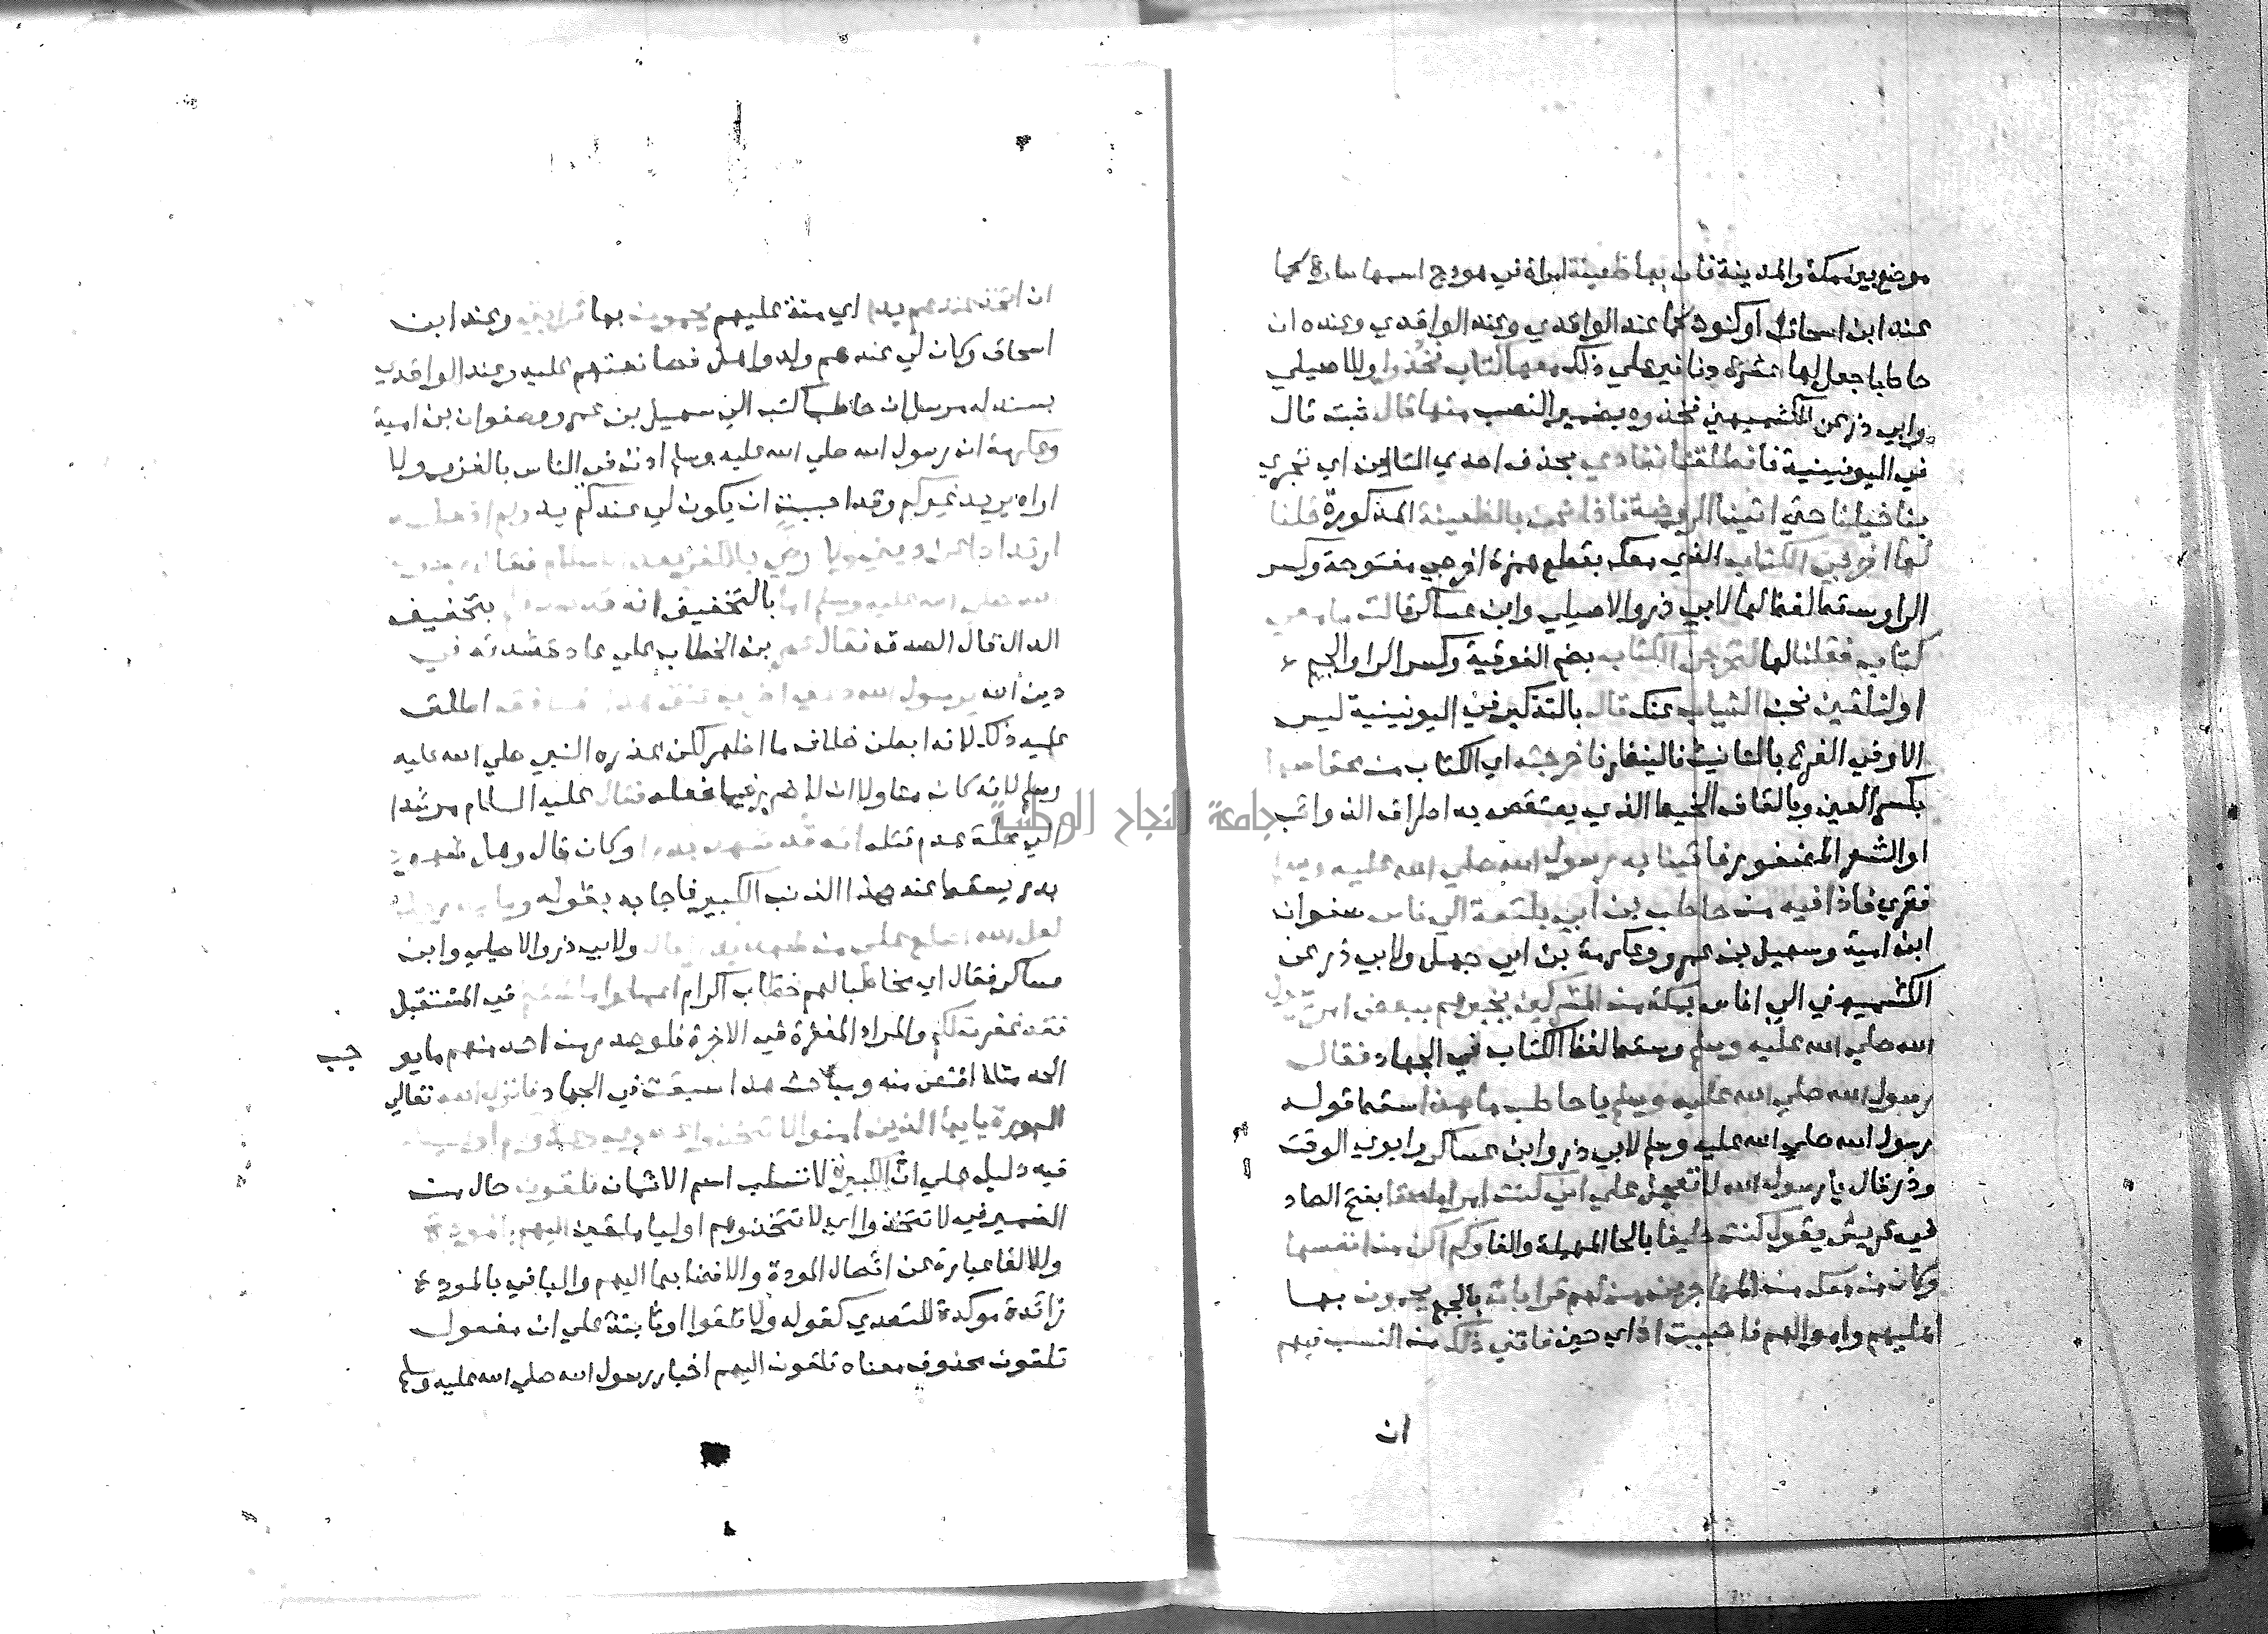 موضع بين مكة والمدينة فان بها ظعينة امراة في هودج اسمها سارة كما
عند ابن اسحاق او كنود كما عند الواقدي وعند الواقدي وعنده ان
حاطبا جعل لها عشرة دنانير علي ذلك معها كتاب فخذوا وللاصيلي
وابي ذر عن الكشميهني فخذوه بضمير النصب منها قال فبت قال
في اليونينية فانطلقنا تعادي بحذف احدي التائين اي تجري
بنا خيلنا حتي اتينا الروضة فاذا نحن بالظعينة المذكورة قلنا
لها اخرجي الكتاب الذي معك بقطع همزة اخرجي مفتوحة وكسر
الرا وسقط لفظ لها لابي ذر والاصيلي وابن عساكر قالت ما معي
كتاب فقلنا لها لتخرجن الكتاب بضم الفوقية وكسر الرا والجيم
او لنلقين نحن الثياب عنك قال بالتذكير في اليونينية ليس
الا وفي الفرع بالتانيث فالينظر فاخرجته اي الكتاب من عقاصها
بكسر العين وبالقاف الخيط الذي يعتقص به اطراف الذوائب
او الشعر المضفور فاتينا به رسول الله صلي الله عليه وسلم
فقري فاذا فيه من حاطب بن ابي بلتعة الي ناس صفوان
ابن امية وسهيل بن عمرو وعكرمة بن ابي جهل ولابي ذر عن
الكشميهني الي اناس بمكة من المشركين يخبرهم ببعض امر رسول
الله صلي الله عليه وسلم وسقط لفظ الكتاب في الجهاد فقال
رسول الله صلي الله عليه وسلم يا حاطب ما هذا سقط قوله
رسول الله صلي الله عليه وسلم لابي ذر وابن عساكر وابوي الوقت
وذر قال يا رسول الله لا تعجل علي اني كنت امرا ملصقا بفتح الصاد
في قريش يقول كنت حليفا بالحا المهملة والفا ولم اكن من انفسها
وكان من معك من المهاجرين من لهم قرابات بالجمع يحمون بها
اهليهم واموالهم فاحببت اذ اي حين فاتني ذلك من النسب فيهم
ان
ان اتخذ عندهم يدا اي منة عليهم يحمون بها قرابتي وعند ابن
اسحاق وكان لي عندهم ولد واهل فصانعتهم عليه وعند الواقدي
بسند له مرسل ان حاطبا كتب الي سهيل بن عمرو وصفوان بن امية
وعكرمة ان رسول الله صلي الله عليه وسلم اذن في الناس بالغزو ولا
اراه يريد غيركم وقد احببت ان يكون لي عندكم يد ولم افعله
ارتدادا عن ديني ولا رضي بالكفر بعد الاسلام فقال رسول
الله صلي الله عليه وسلم اما بالتخفيف انه قد صدقكم بتخفيف
الدال قال الصدق فقال عمر بن الخطاب علي عادة شدته في
دين الله يرسول الله دعني اضرب عنق هذا المنافق اطلق
عليه ذلك لانه ابطن خلاف ما اظهر لكن عذره النبي صلي الله عليه
وسلم لانه كان متاولا ان لا ضرر فيما فعله فقال عليه السلام مرشدا
الي علة عدم قتله انه قد شهد بدرا وكان قال وهل شهود
بدر يسقط عنه هذا الذنب الكبير فاجابه بقوله وما يدريك
لعل الله اطلع علي من شهد بدرا قال ولابي ذر والاصيلي وابن
عساكر فقال اي مخاطبا لهم خطاب اكرام اعملوا ما شئتم في المستقبل
فقد غفرت لكم والمراد المغفرة في الاخرة فلو صدر من احد منهم ما يو
جب
الحد مثلا اقتص منه ومباحث هذا سبقت في الجهاد فانزل الله تعالي
السورة يايها الذين امنوا لا تتخذوا عدوي وعدوكم اوليا
فيه دليل علي ان الكبيرة لا تسلب اسم الايمان تلقون حال من
الضمير في لا تتخذوا اي لا تتخذوهم اوليا ملقين اليهم بالمودة
والالقا عبارة عن ايصال المودة والافضا بها اليهم والبا في بالمودة
زائدة موكدة للتعدي كقوله ولا تلقوا او ثابتة علي ان مفعول
تلقون محذوف معناه تلقون اليهم اخبار رسول الله صلي الله عليه وسلم
جامعة النجاح الوطنية